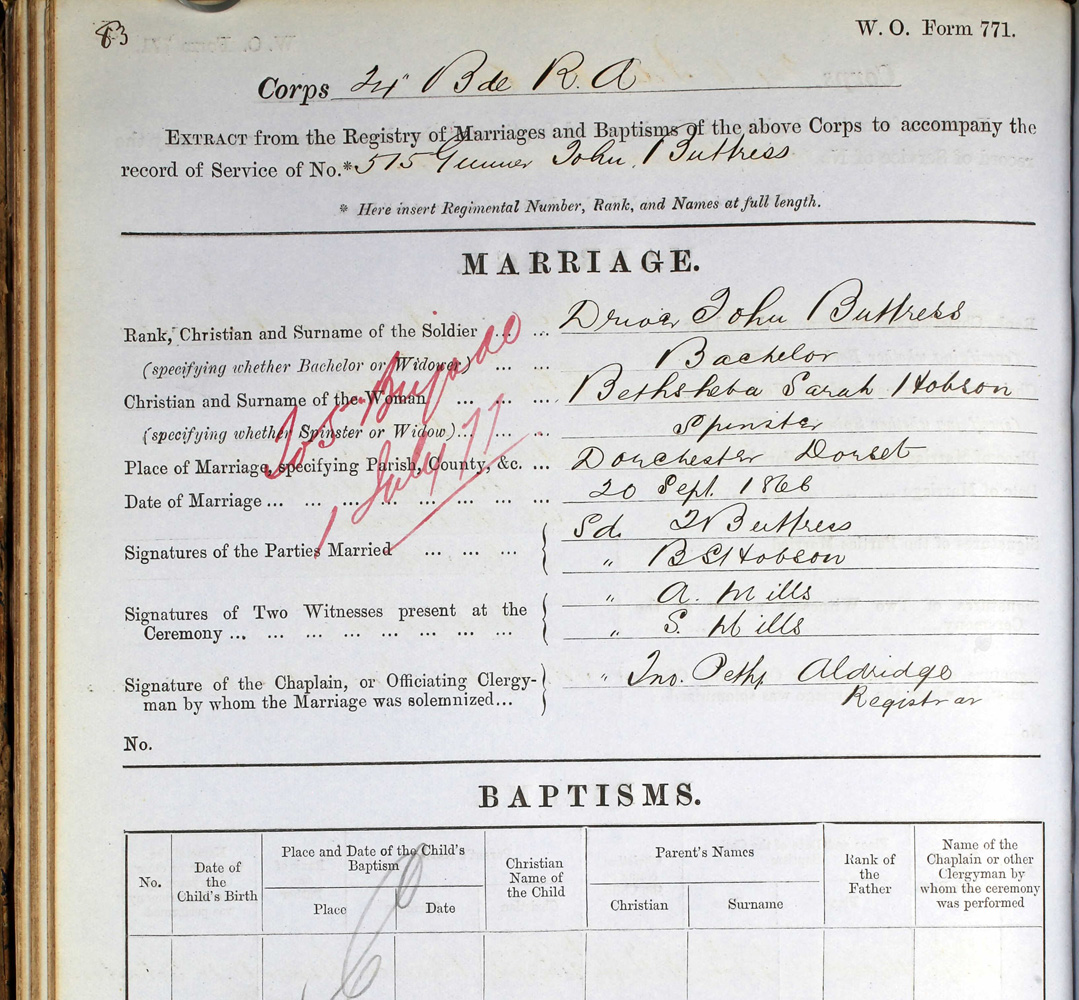 83
W. O. Form 771.
Corps Bde R. A
EXTRACT from the Registry of Marriages and Baptisms of the above Corps to accompany the
record of Service of No.* 575 Gunner John Buttress
* Here insert Regimental Number, Rank, and Names at full length.
MARRIAGE.
Rank, Christian and Surname of the Soldier ... ... Driver John Buttress
(specifying whether Bachelor or Widower) ... ... Bachelor
Christian and Surname of the Woman ... ... ... Bethsheba Sarah Hobson
(specifying whether Spinster or Widow)... ... ... Spinster
Place of Marriage, specifying Parish, County, &c. ... Dorchester Dorset
Date of Marriage ... ... ... ... ... ... ... ... 20 Sept. 1866
To 5 Brigade
1 July 77
Signatures of the Parties Married ... ... ... Sd. J Buttress
" B S Hobson
Signatures of Two Witnesses present at the " A. Mills
Ceremony ... ... ... ... ... ... ... ... " S. Mills
Signature of the Chaplain, or Officiating Clergy- " Jno. Aldridge
man by whom the Marriage was solemnized... Registrar
No.
BAPTISMS.
No.
Date of the Child's Birth
Place and Date of the Child's Baptism
Place
Date
Christian Name of the Child
Parent's Names
Christian
Surname
Rank of the Father
Name of the Chaplain or other Clergyman by whom the ceremony was performed